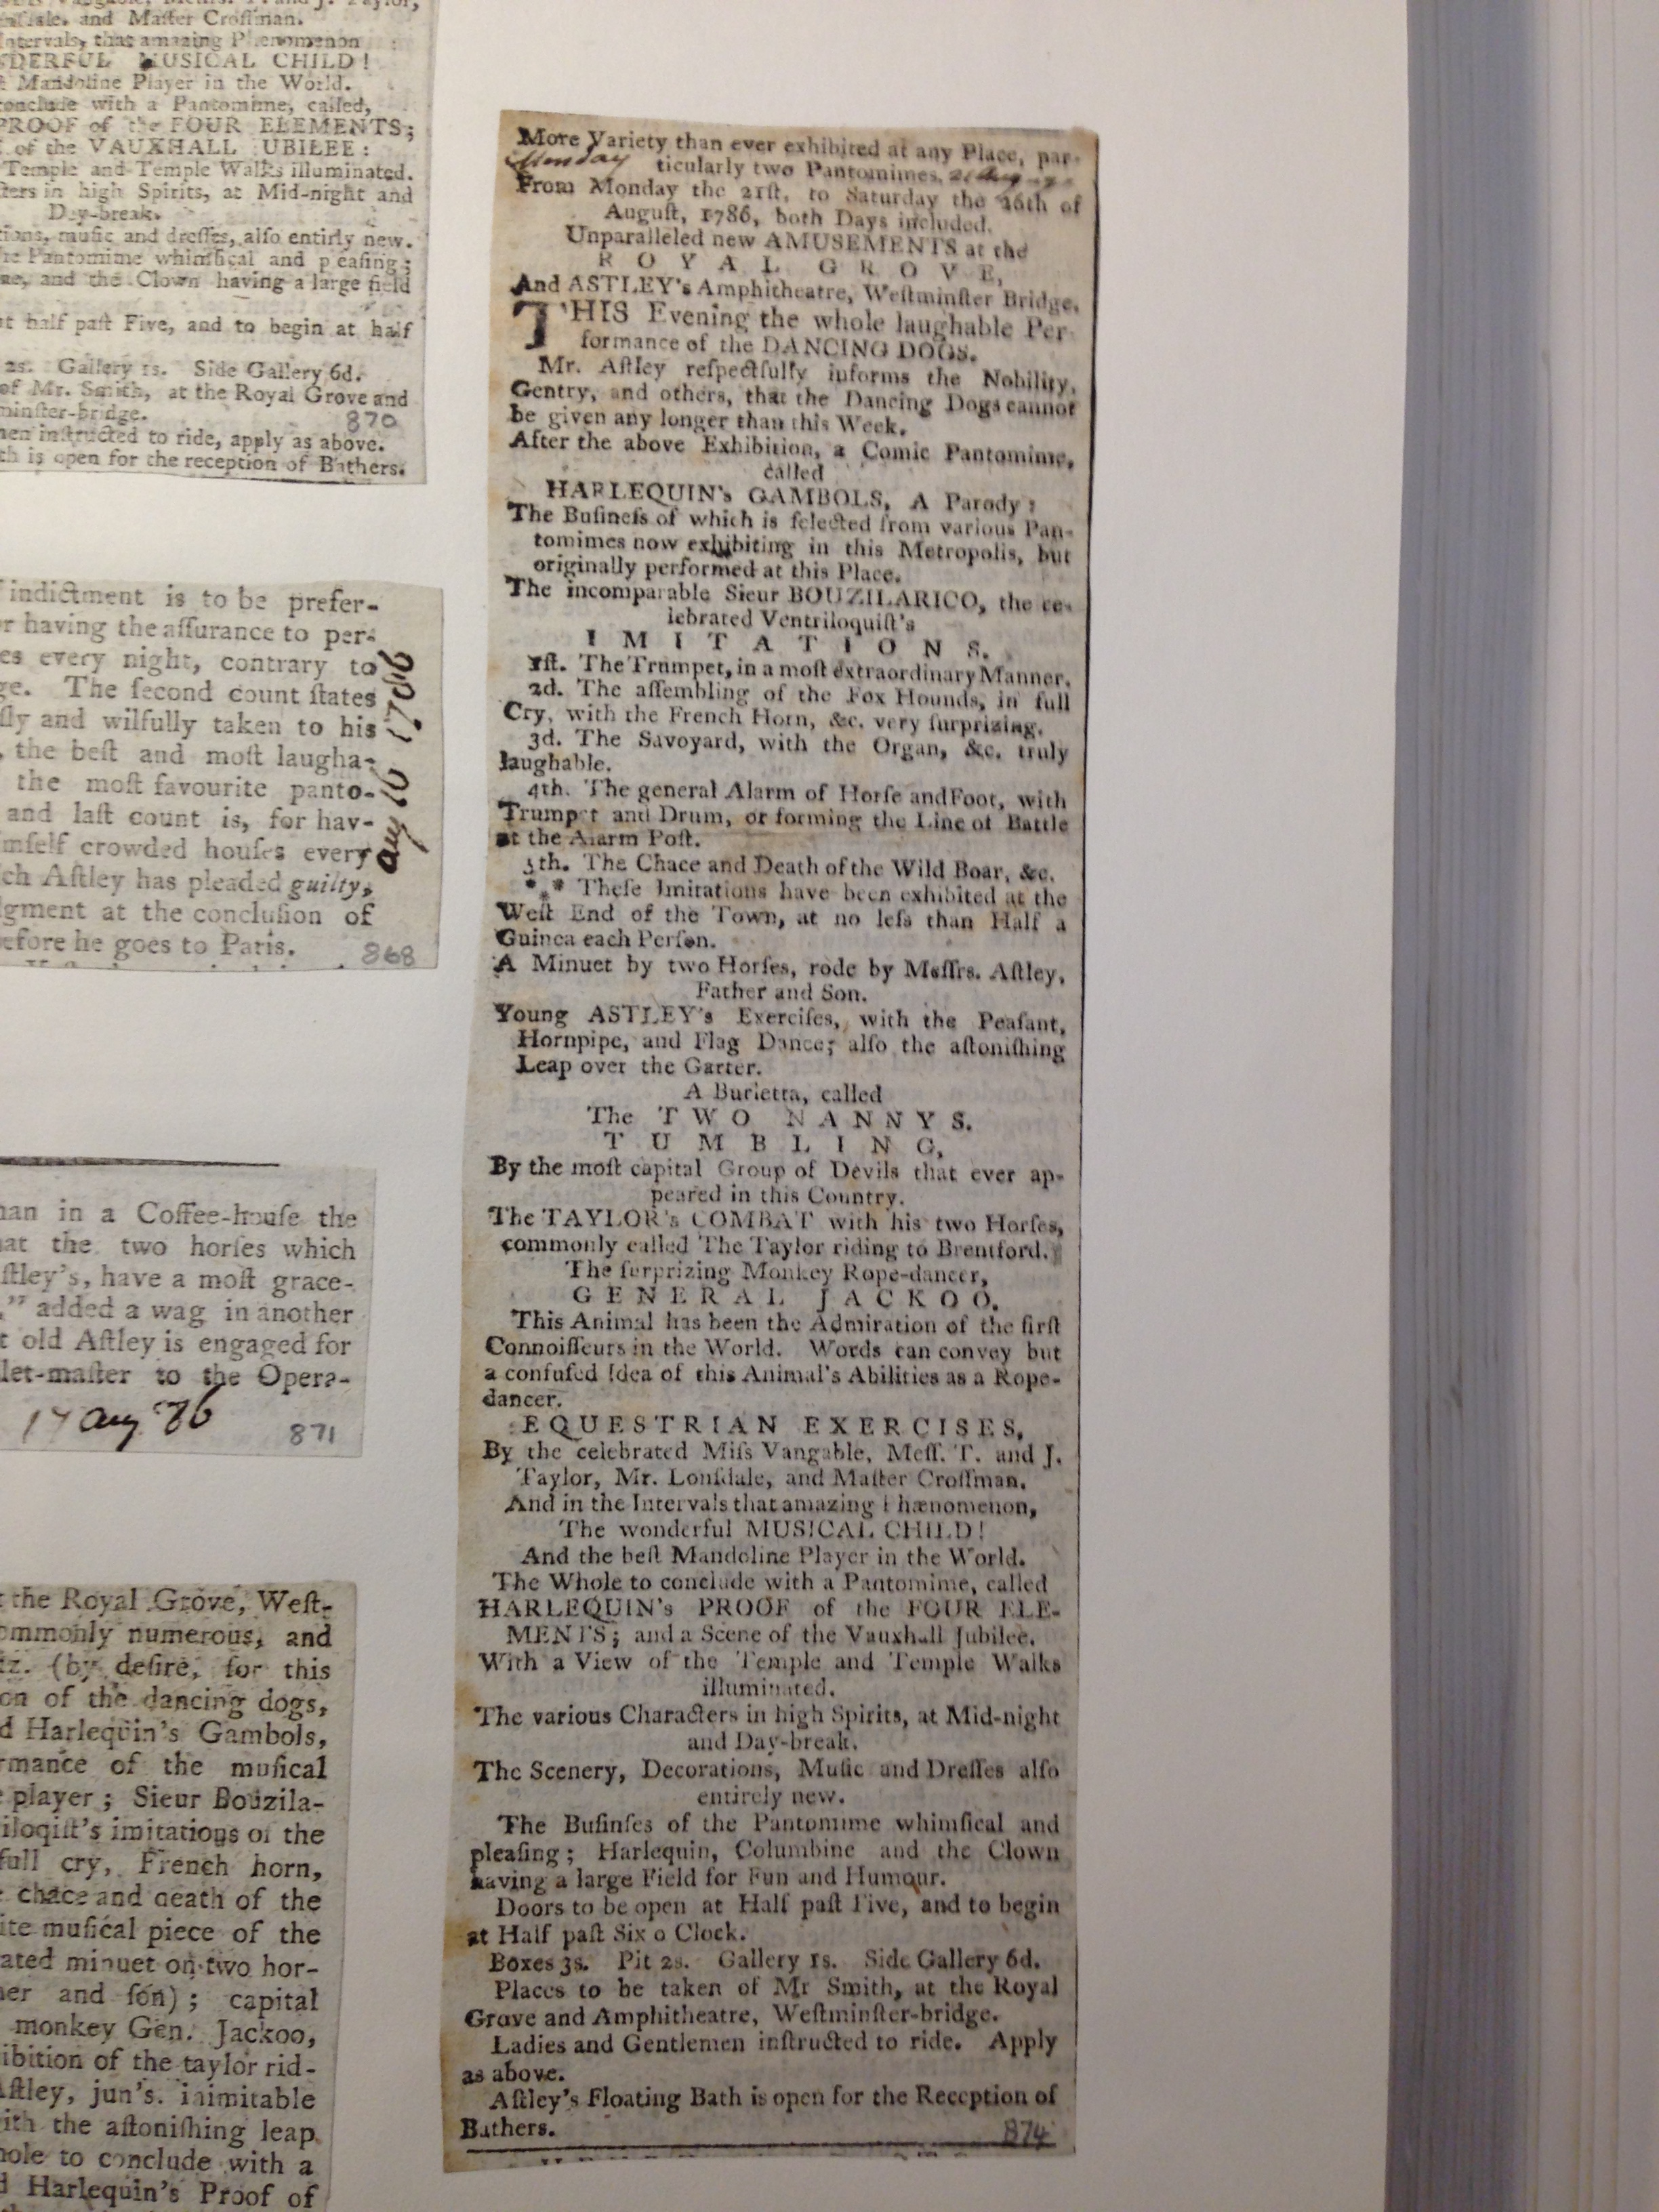 and Master Crossman.
Intervals, that amazing Phenomenon
WONDERFUL MUSICAL CHILD!
Mandoline Player in the World.
conclude with a Pantomime, called,
PROOF of the FOUR ELEMENTS;
of the VAUXHALL UBILEE:
Temple and Temple Walks illuminated.
in high Spirits, at Mid-night and
Day-break.
muſic and dreſſes, alſo entirly new.
Pantomime whimſical and pleaſing;
and the Clown having a large field
half paſt Five, and to begin at half
2s. Gallery 1s. Side Gallery 6d.
of Mr. Smith, at the Royal Grove and
minſter-bridge.
870
inſtructed to ride, apply as above.
is open for the reception of Bathers.
indictment is to be prefer-
r having the aſſurance to per-
es every night, contrary to
ge. The ſecond count ſtates
ſly and wilfully taken to his
, the beſt and moſt laugha-
the moſt favourite panto-
and laſt count is, for hav-
imſelf crowded houſes every
ch Aſtley has pleaded guilty,
dgment at the concluſion of
before he goes to Paris.
aug 10 1786
868
man in a Coffee-houſe the
hat the two horſes which
ſtley's, have a moſt grace-
," added a wag in another
t old Aſtley is engaged for
let-maſter to the Opera-
17 aug '86
871
t the Royal Grove, Weſt-
ommonly numerous, and
iz. (by deſire, for this
on of the dancing dogs,
d Harlequin's Gambols,
rmance of the muſical
player; Sieur Bouzila-
iloqiſt's imitations of the
full cry, French horn,
chace and death of the
ite muſical piece of the
ated minuet on two hor-
her and ſon); capital
monkey Gen. Jackoo,
ibition of the taylor rid-
Aſtley, jun's. inimitable
ith the aſtoniſhing leap
hole to conclude with a
d Harlequin's Proof of
More Variety than ever exhibited at any Place, par-
Monday
ticularly two Pantomimes.
From Monday the 21ſt, to Saturday the 26th of
Auguſt, 1786, both Days included.
Unparalleled new AMUSEMENTS at the
ROYAL GROVE,
And ASTLEY's Amphitheatre, Weſtminſter Bridge.
THIS Evening the whole laughable Per
formance of the DANCING DOGS.
Mr. Aſtley reſpectfully informs the Nobility,
Gentry, and others, that the Dancing Dogs cannot
be given any longer than this Week.
After the above Exhibition, a Comic Pantomime,
called
HARLEQUIN's GAMBOLS, A Parody:
The Buſineſs of which is ſelected from various Pan-
tomimes now exhibiting in this Metropolis, but
originally performed at this Place.
The incomparable Sieur BOUZILARICO, the ce-
lebrated Ventriloquiſt's
IMITATIONS.
1ſt. The Trumpet, in a moſt extraordinary Manner.
2d. The aſſembling of the Fox Hounds, in full
Cry, with the French Horn, &c. very ſurprizing.
3d. The Savoyard, with the Organ, &c. truly
laughable.
4th. The general Alarm of Horſe and Foot, with
Trumpet and Drum, or forming the Line of Battle
at the Alarm Poſt.
5th. The Chace and Death of the Wild Boar, &c.
*** Theſe Imitations have been exhibited at the
Weſt End of the Town, at no leſs than Half a
Guinea each Perſon.
A Minuet by two Horſes, rode by Meſſrs. Aſtley,
Father and Son.
Young ASTLEY's Exerciſes, with the Peaſant,
Hornpipe, and Flag Dance; alſo the aſtoniſhing
Leap over the Garter.
A Burletta, called
The TWO NANNYS.
TUMBLING,
By the moſt capital Group of Devils that ever ap-
peared in this Country.
The TAYLOR's COMBAT with his two Horſes,
commonly called The Taylor riding to Brentford.
The ſurprizing Monkey Rope-dancer,
GENERAL JACKOO.
This Animal has been the Admiration of the firſt
Connoiſſeurs in the World. Words can convey but
a confuſed Idea of this Animal's Abilities as a Rope-
dancer.
EQUESTRIAN EXERCISES,
By the celebrated Miſs Vangable, Meſſ. T. and J.
Taylor, Mr. Lonſdale, and Maſter Croſſman.
And in the Intervals that amazing Phænomenon,
The wonderful MUSICAL CHILD!
And the beſt Mandoline Player in the World.
The Whole to conclude with a Pantomime, called
HARLEQUIN's PROOF of the FOUR ELE-
MENTS; and a Scene of the Vauxhall Jubilee.
With a View of the Temple and Temple Walks
illuminated.
The various Characters in high Spirits, at Mid-night
and Day-break.
The Scenery, Decorations, Muſic and Dreſſes alſo
entirely new.
The Buſinſes of the Pantomime whimſical and
pleaſing; Harlequin, Columbine and the Clown
having a large Field for Fun and Humour.
Doors to be open at Half paſt Five, and to begin
at Half paſt Six o Clock.
Boxes 3s. Pit 2s. Gallery 1s. Side Gallery 6d.
Places to be taken of Mr Smith, at the Royal
Grove and Amphitheatre, Weſtminſter-bridge.
Ladies and Gentlemen inſtructed to ride. Apply
as above.
Aſtley's Floating Bath is open for the Reception of
Bathers.
874